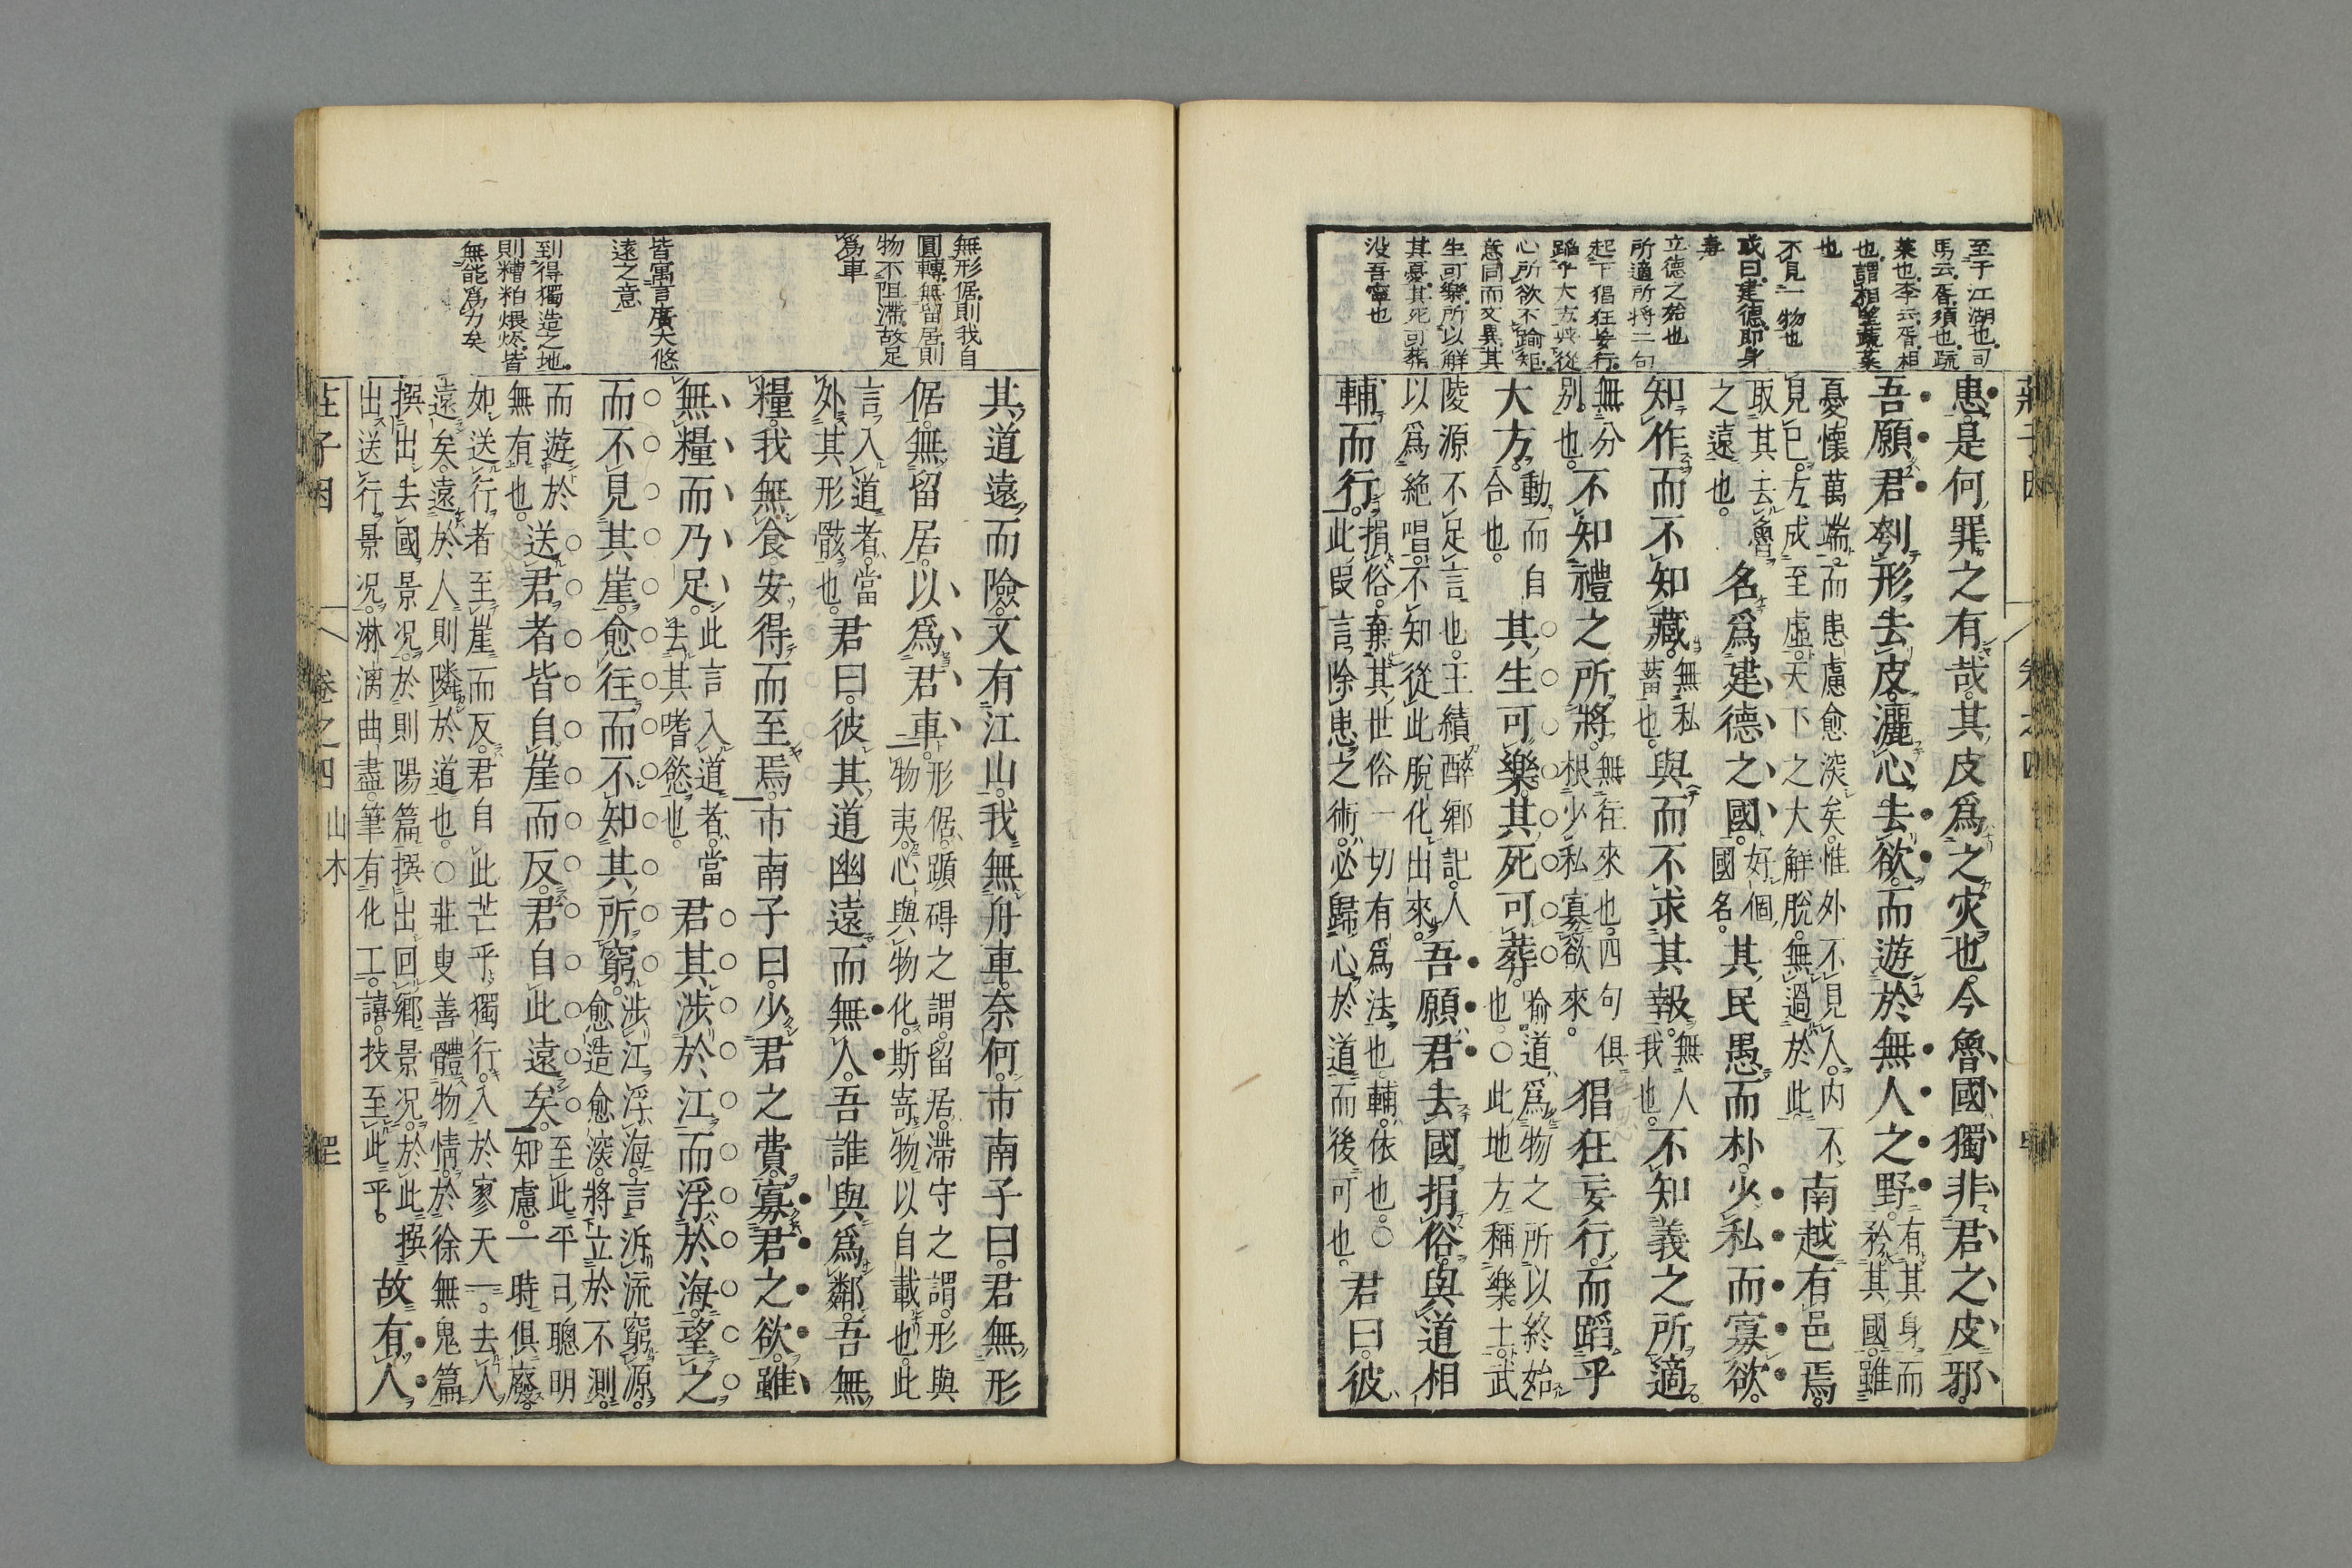 莊子因
卷之四
至于江湖也司
馬云胥須也疏
菜也李云胥相
也謂相望疏菜
也
不見一物也
或曰建德即身
毒
立德之始也
所適所將二句
起下猖狂妄行
蹈乎大方與從
心所欲不踰矩
意同而文異其
生可樂所以解
其憂其死可葬
没吾寧也
患。是何罪之有哉。其皮爲之灾也。今魯國獨非君之皮邪。
吾願君刳形去皮。灑心去欲。而遊於無人之野。有其身而矜其國。雖
憂懷萬端。而患慮愈深矣。惟外不見人。内不見已。方成至虛。天下之大解脫。無過於此。南越有邑焉。
取其去魯之遠也。名爲建德之國。好個國名。其民愚而朴。少私而寡欲。
知作而不知藏。無私蓄也。與而不求其報。無人我也。不知義之所適。
無分別也。不知禮之所將。無往來也。四句俱根少私寡欲來。猖狂妄行。而蹈乎
大方。動而自合也。其生可樂。其死可葬。喻道爲物之所以終始也。○此地方稱樂土。武
陵源不足言也。王績醉鄉記。人以爲絶唱。不知從此脫化出來。吾願君去國捐俗。與道相
輔而行。捐俗。棄其世俗一切有爲法也。輔。依也。○此叚言除患之術。必歸心於道而後可也。君曰。彼
無形倨則我自
圓轉無留居則
物不阻滯故足
爲車
皆寓言廣大悠
遠之意
到得獨造之地
則糟粕煨烬皆
無能爲力矣
其道遠而險。又有江山。我無舟車。奈何。市南子曰。君無形
倨。無留居。以爲君車。形倨。躓碍之謂。留居。滯守之謂。形與物夷。心與物化。斯寄物以自載也。此
言入道者。當外其形骸也。君曰。彼其道幽遠而無人。吾誰與爲鄰。吾無
糧。我無食。安得而至焉。市南子曰。少君之費。寡君之欲。雖
無糧而乃足。此言入道者。當去其嗜慾也。君其涉於江而浮於海。望之
而不見其崖。愈往而不知其所窮。涉江浮海。言泝流窮源。愈造愈深。將立於不測。
而遊於無有也。送君者皆自崖而反。君自此遠矣。至此平日聰明知慮。一時俱廢。
如送行者至崖而反。君自此芒乎獨行。入於寥天一。去人遠矣。遠於人則隣於道也。○莊叟善體物情。於徐無鬼篇
撰出去國景况。於則陽篇撰出回鄉景况。於此撰出送行景况。淋漓曲盡。筆有化工。譆。技至此乎。故有人
莊子因
卷之四
山木